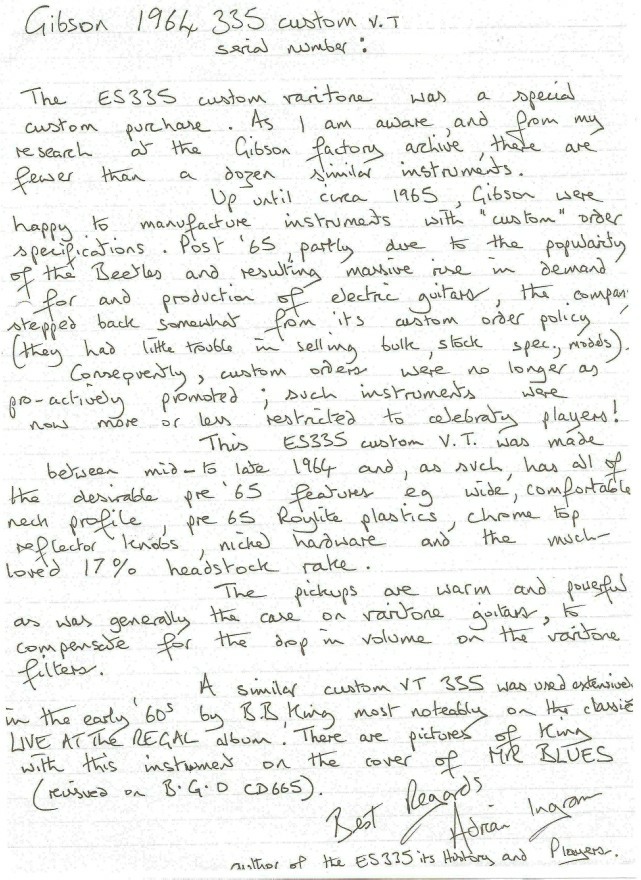 Gibson 1964 335 custom V.T
serial number :
The ES335 custom varitone was a special
custom purchase. As I am aware, and from my
research at the Gibson factory archive, there are
fewer than a dozen similar instruments.
Up until circa 1965, Gibson were
happy to manufacture instruments with "custom" order
specifications. Post '65, partly due to the popularity
of the Beetles and resulting massive rise in demand
for and production of electric guitars, the compan
stepped back somewhat from its custom order policy
(they had little trouble in selling bulk, stock spec., models).
Consequently, custom orders were no longer as
pro-actively promoted ; such instruments were
now more or less restricted to celebraty players!
This ES335 custom V.T. was made
between mid-to late 1964 and, as such, has all of
the desirable pre '65 features eg wide, comfortable
neck profile, pre 65 Roylite plastics, chrome top
'reflector' knobs, nickel hardware and the much-
loved 17% headstock rake.
The pickups are warm and powerful
as was generally the case on varitone guitars, to
compensate for the drop in volume on the varitone
filters.
A similar custom VT 335 was used extensive
in the early '60s by B.B. King most noteably on the classic
LIVE AT The REGAL album. There are pictures of King
with this instrument on the cover of MR BLUES
(reissued on B.G.O CD665).
Best Regards
Adrian Ingram
author of the ES335 its History and Players.